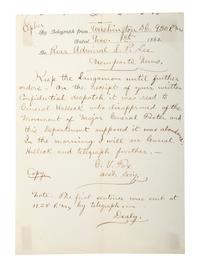 Cipher
By Telegraph from Washington DC 9.50 P.M.
Dated Nov 1st 1862.
To Rear Admiral S. P. Lee.
Newport News.
Keep the Sangamon until further
orders. On the receipt of your written
Confidential despatch it was read to
General Halleck who disapproved of the
Movement of Major General Foster and
this Department supposed it was abandoned
In the morning I will see General
Halleck and telegraph further.
G. V. Fox
Asst. Secy.
Copy
Note. The first sentence was sent at
P.M. by telegraph.